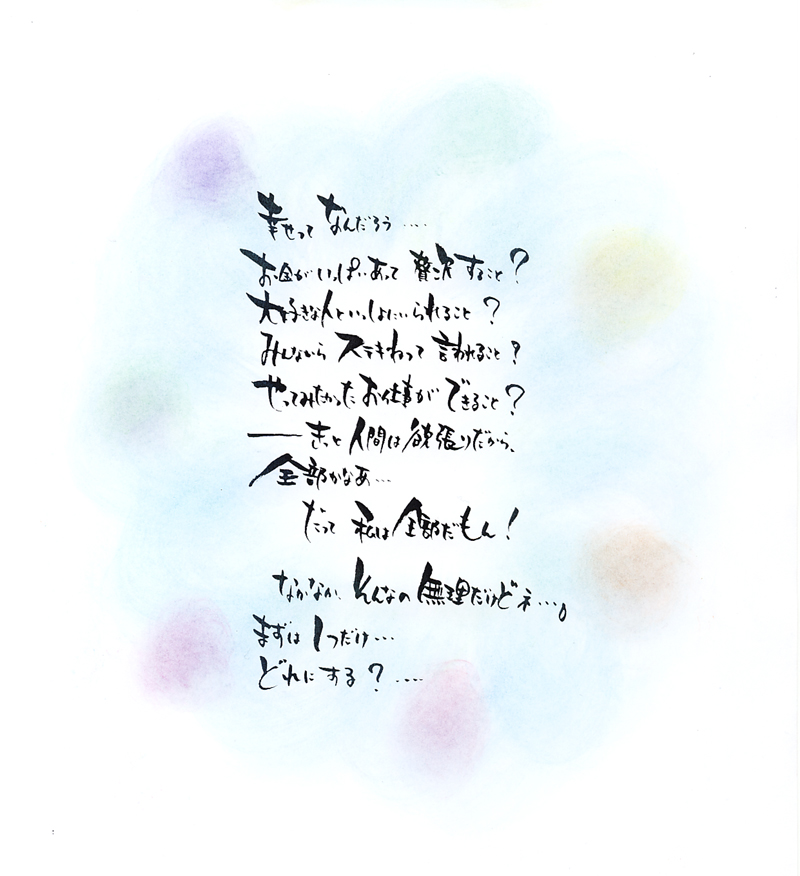 幸せって なんだろう‥‥
お金がいっぱいあって 贅沢すること?
大好きな人といっしょにいられること?
みんなから ステキねって 言われること?
やってみたかったお仕事が できること?
── きっと 人間は欲張りだから、
全部かなあ…
だって 私は全部だもん!
なかなか、そんなの 無理だけどネ…。
まずは 1つだけ…
どれにする?‥‥